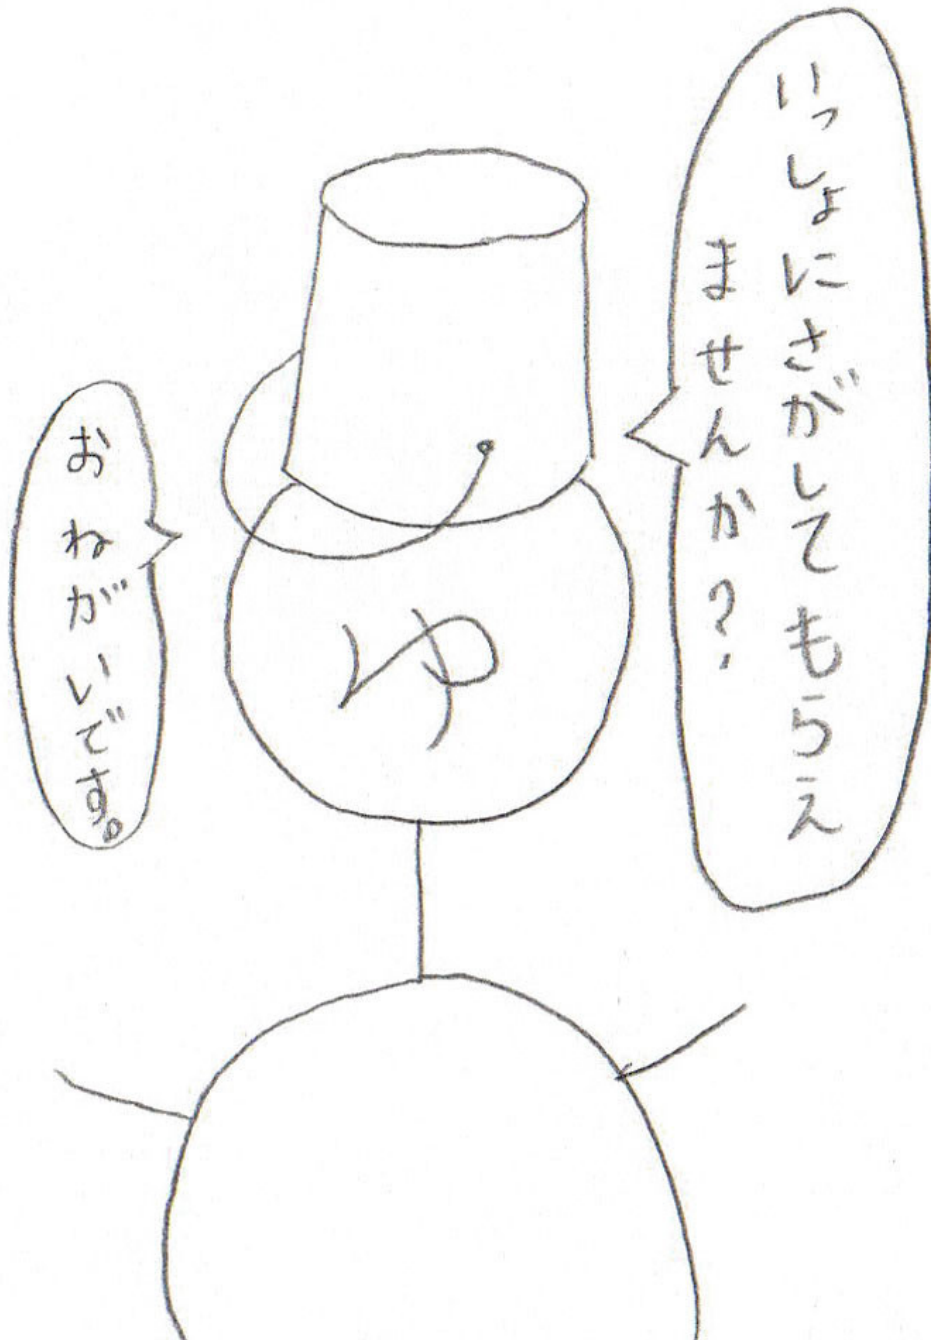 いっしょにさがしてもらえ
ませんか？
ゆ
おねがいです。